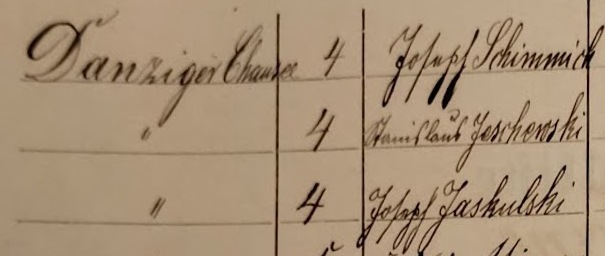 Danziger Chausee 4 Joseph Schimmick
" 4 Stanislaus Jeschewski
" 4 Joseph Jaskulski